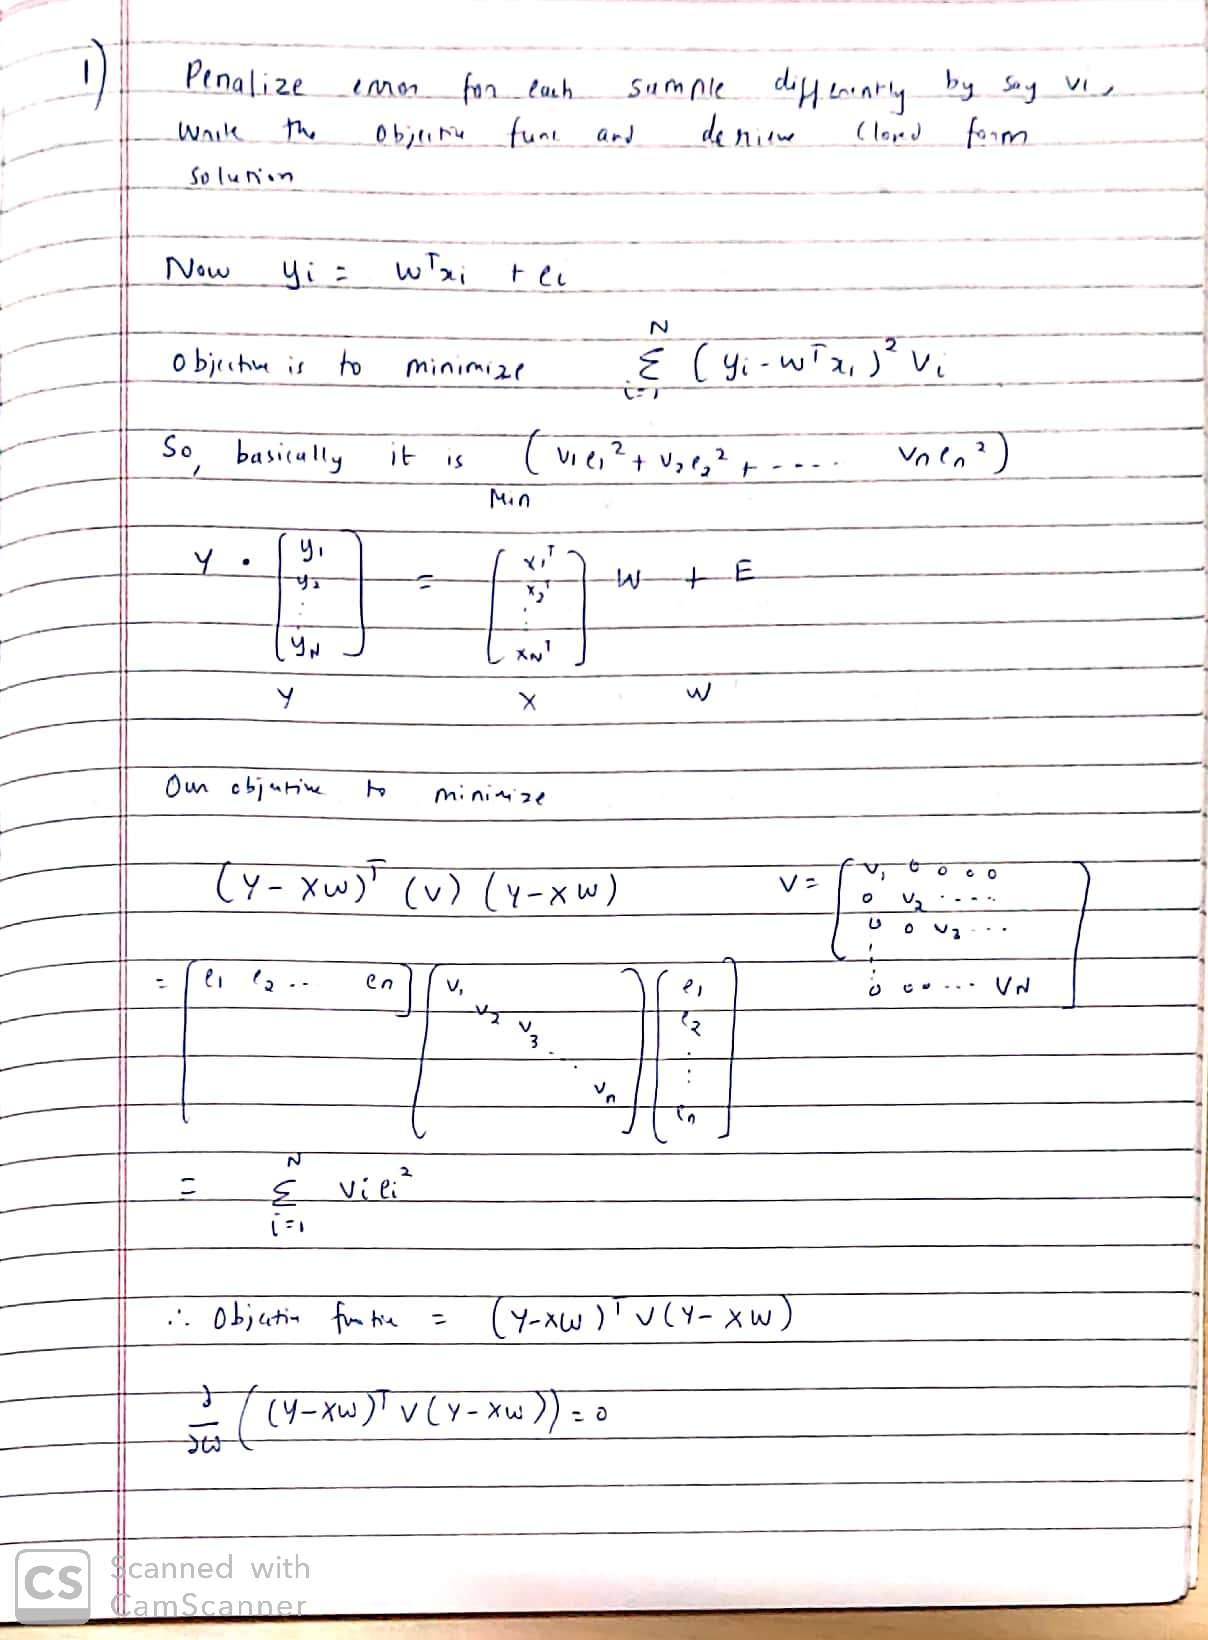 1) Penalize error for each sample differently by say vi,
Write the objective func and derieve closed form
solution
Now yi = wᵀxi + ei
Objective is to minimize Σ_{i=1}^{N} (yi - wᵀxi)² Vi
So, basically it is (v1e1² + v2e2² + ---- vnen²)
Min
Y . [y1 y2 : yN] = [x1ᵀ x2ᵀ : xNᵀ] W + E
Y X W
Our objective to minimize
(Y - XW)ᵀ (V) (Y - XW) V = [v1 0 0 0 0
0 v2 ....
0 0 v3 ...
: 0 0 0 ... VN]
= [e1 e2 .. en] [v1 v2 v3 . . vn] [e1 e2 : : en]
= Σ_{i=1}^{N} viei²
∴ Objective functio = (Y-XW)ᵀ V (Y-XW)
∂/∂w ((Y-XW)ᵀ V (Y-XW)) = 0
CS Scanned with
CamScanner